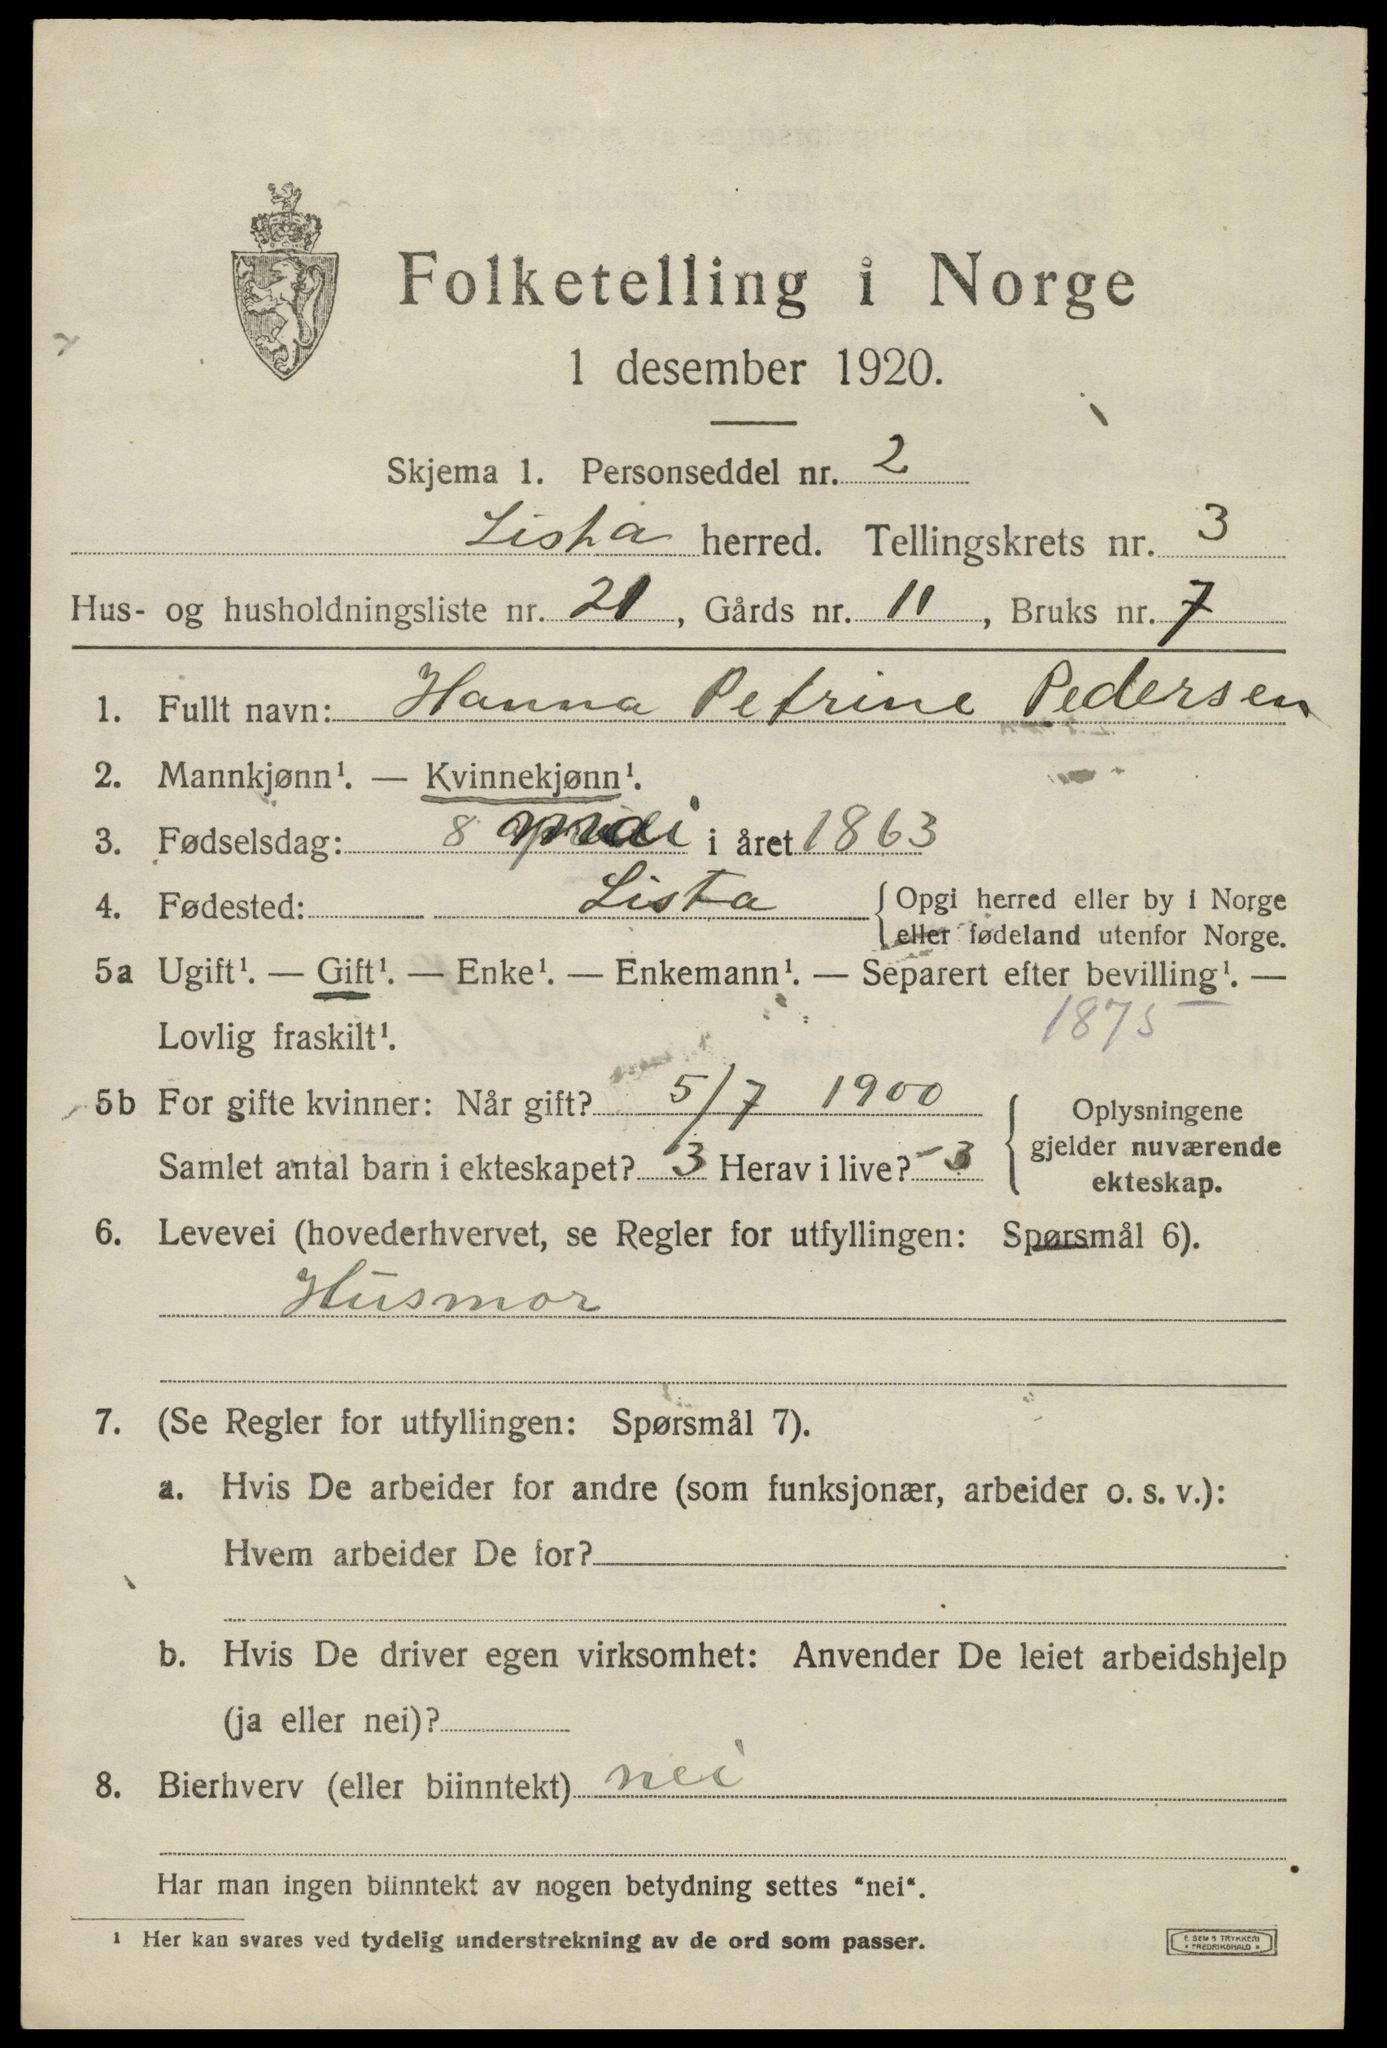 Folketelling i Norge
1 desember 1920.
Skjema 1. Personseddel nr. 2
Lista herred. Tellingskrets nr. 3
Hus- og husholdningsliste nr. 21, Gårds nr. 11, Bruks nr. 7
1. Fullt navn: Hanna Petrine Pedersen
2. Mannkjønn¹. — Kvinnekjønn¹.
3. Fødselsdag: 8 mai i året 1863
4. Fødested: Lista {Opgi herred eller by i Norge
eller fødeland utenfor Norge.
5a Ugift¹. — Gift¹. — Enke¹. — Enkemann¹. — Separert efter bevilling¹. —
1875
Lovlig fraskilt¹.
5b For gifte kvinner: Når gift? 5/7 1900
Samlet antal barn i ekteskapet? 3 Herav i live? 3
{Oplysningene
gjelder nuværende
ekteskap.
6. Levevei (hovederhvervet, se Regler for utfyllingen: Spørsmål 6).
Husmor
7. (Se Regler for utfyllingen: Spørsmål 7).
a. Hvis De arbeider for andre (som funksjonær, arbeider o. s. v.):
Hvem arbeider De for?
b. Hvis De driver egen virksomhet: Anvender De leiet arbeidshjelp
(ja eller nei)?
8. Bierhverv (eller biinntekt) nei
Har man ingen biinntekt av nogen betydning settes "nei".
¹ Her kan svares ved tydelig understrekning av de ord som passer.
E. SEM'S TRYKKERI
• FREDRIKSHALD •